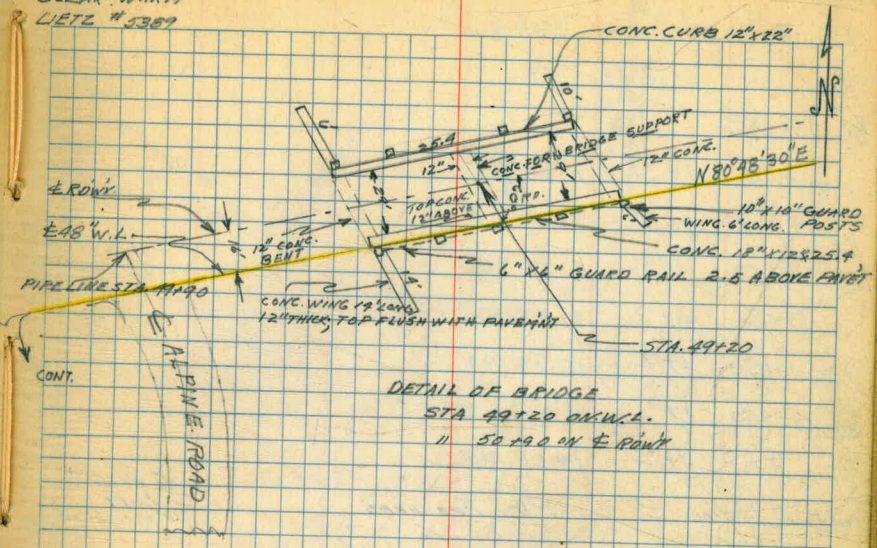 LIETZ # 5389
CONC. CURB 12"x22"
10'
25.4
12"
CONC. FOR BRIDGE SUPPORT
12" CONC.
N 80° 48' 30" E
N
24'
TOP CONC.
12" ABOVE
RD.
10" x 10" GUARD
POSTS
WING 6' LONG.
CONC. 18"x12x25.4
6" x 6" GUARD RAIL 2.5 ABOVE PAVE'T
₵ ROWY
₵ 48" W.L.
16'
12" CONC.
BENT
PIPE LINE STA 49+90
14'
CONC. WING 14' LONG
12" THICK, TOP FLUSH WITH PAVEMNT
STA. 49+20
CONT.
₵ ALPINE ROAD
DETAIL OF BRIDGE
STA 49+20 ON W.L.
" 50+90 ON ₵ ROWY